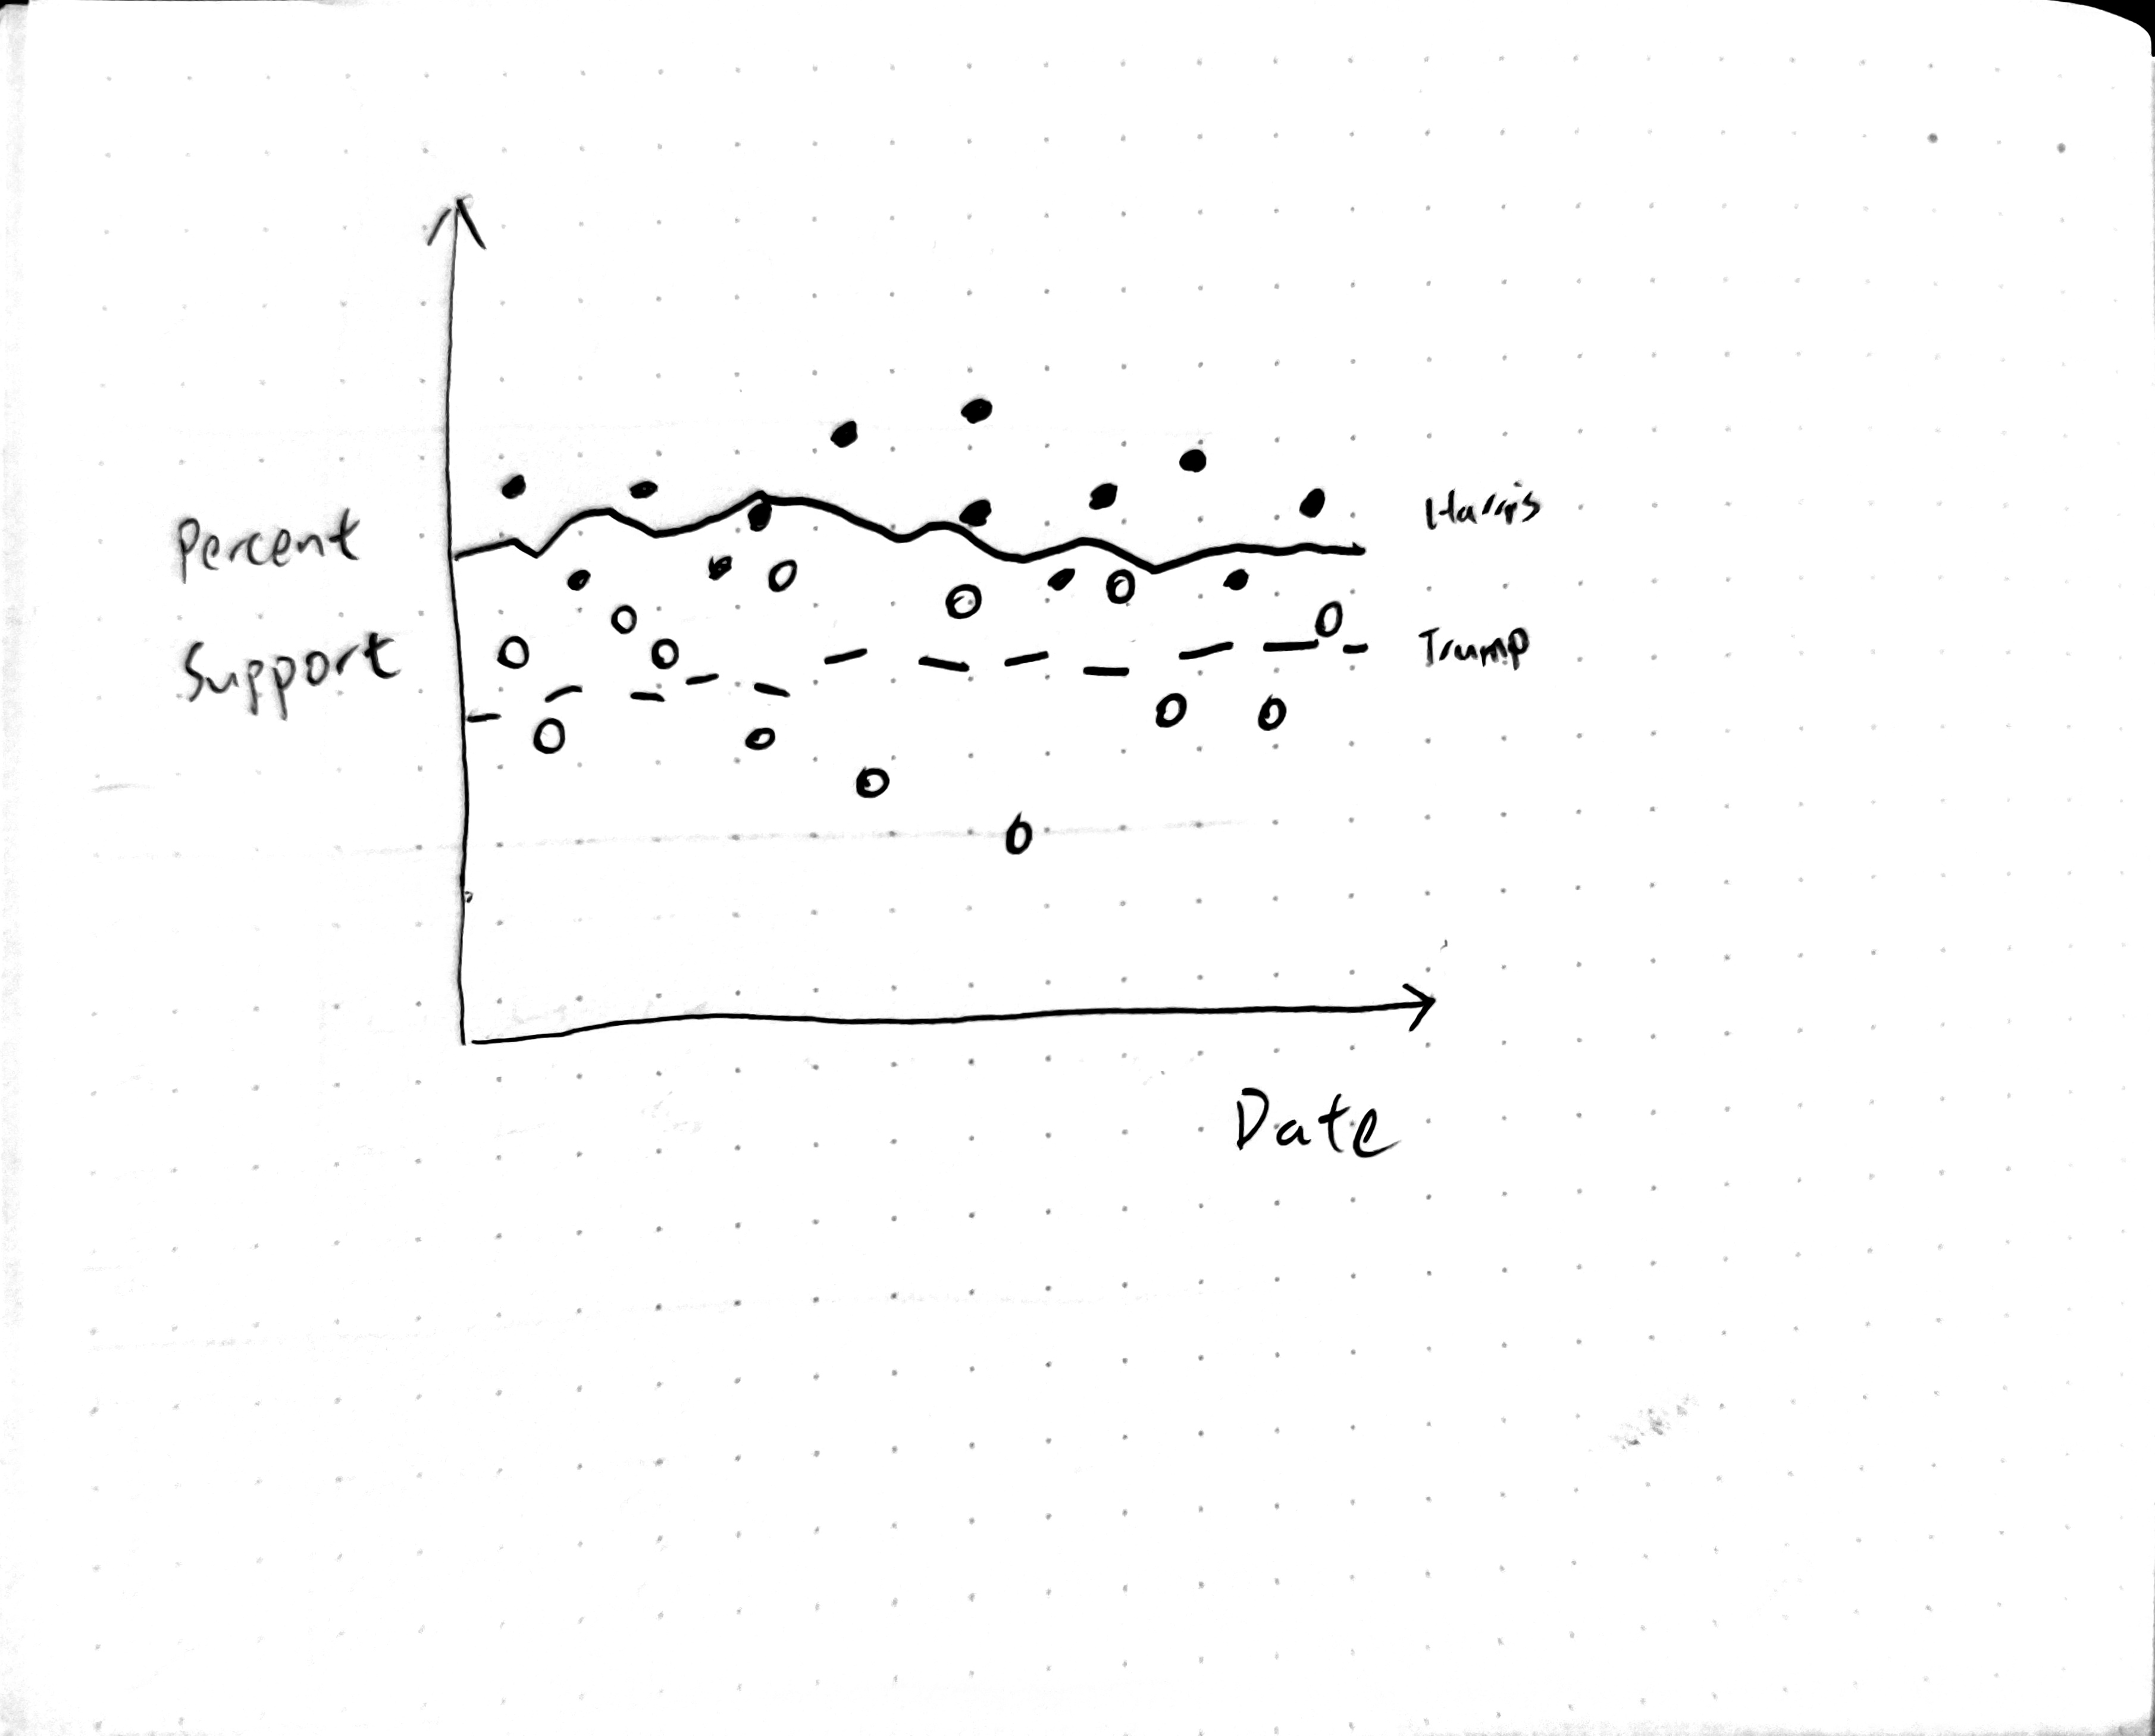 Percent
Support
Harris
Trump
Date